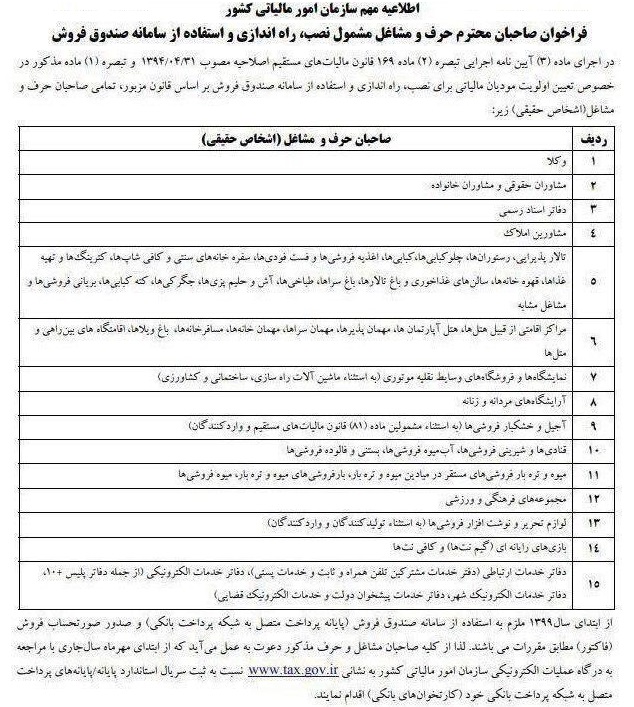 اطلاعیه مهم سازمان امور مالیاتی کشور
فراخوان صاحبان محترم حرف و مشاغل مشمول نصب، راه اندازی و استفاده از سامانه صندوق فروش
در اجرای ماده (۳) آیین نامه اجرایی تبصره (۲) ماده ۱۶۹ قانون مالیات‌های مستقیم اصلاحیه مصوب ۱۳۹۴/۰۴/۳۱ و تبصره (۱) ماده مذکور در
خصوص تعیین اولویت مودیان مالیاتی برای نصب، راه اندازی و استفاده از سامانه صندوق فروش بر اساس قانون مزبور، تمامی صاحبان حرف و
مشاغل(اشخاص حقیقی) زیر:
ردیف صاحبان حرف و مشاغل (اشخاص حقیقی)
۱ وکلا
۲ مشاوران حقوقی و مشاوران خانواده
۳ دفاتر اسناد رسمی
۴ مشاورین املاک
تالار پذیرایی، رستوران‌ها، چلوکبابی‌ها،کبابی‌ها، اغذیه فروشی‌ها و فست فودی‌ها، سفره خانه‌های سنتی و کافی شاپ‌ها، کترینگ‌ها و تهیه
۵ غذاها، قهوه خانه‌ها، سالن‌های غذاخوری و باغ تالارها، باغ سراها، طباخی‌ها، آش و حلیم پزی‌ها، جگرکی‌ها، کته کبابی‌ها، بریانی فروشی‌ها و
مشاغل مشابه
۶ مراکز اقامتی از قبیل هتل‌ها، هتل آپارتمان ها، مهمان پذیرها، مهمان سراها، مهمان خانه‌ها، مسافرخانه‌ها، باغ ویلاها، اقامتگاه های بین‌راهی و
متل‌ها
۷ نمایشگاه‌ها و فروشگاه‌های وسایط نقلیه موتوری (به استثناء ماشین آلات راه سازی، ساختمانی و کشاورزی)
۸ آرایشگاه‌های مردانه و زنانه
۹ آجیل و خشکبار فروشی‌ها (به استثناء مشمولین ماده (۸۱) قانون مالیات‌های مستقیم و واردکنندگان)
۱۰ قنادی‌ها و شیرینی فروشی‌ها، آب‌میوه فروشی‌ها، بستنی و فالوده فروشی‌ها
۱۱ میوه و تره بار فروشی‌های مستقر در میادین میوه و تره بار، بارفروشی‌های میوه و تره بار، میوه فروشی‌ها
۱۲ مجموعه‌های فرهنگی و ورزشی
۱۳ لوازم تحریر و نوشت افزار فروشی‌ها (به استثناء تولیدکنندگان و واردکنندگان)
۱۴ بازی‌های رایانه ای (گیم نت‌ها) و کافی نت‌ها
۱۵ دفاتر خدمات ارتباطی (دفتر خدمات مشترکین تلفن همراه و ثابت و خدمات پستی)، دفاتر خدمات الکترونیکی (از جمله دفاتر پلیس +۱۰،
دفاتر خدمات الکترونیک شهر، دفاتر خدمات پیشخوان دولت و خدمات الکترونیک قضایی)
از ابتدای سال۱۳۹۹ ملزم به استفاده از سامانه صندوق فروش (پایانه پرداخت متصل به شبکه پرداخت بانکی) و صدور صورتحساب فروش
(فاکتور) مطابق مقررات می باشند. لذا از کلیه صاحبان مشاغل و حرف مذکور دعوت به عمل می‌آید که از ابتدای مهرماه سال‌جاری با مراجعه
به درگاه عملیات الکترونیکی سازمان امور مالیاتی کشور به نشانی www.tax.gov.ir نسبت به ثبت سریال استاندارد پایانه/پایانه‌های پرداخت
متصل به شبکه پرداخت بانکی خود (کارتخوان‌های بانکی) اقدام نمایند.